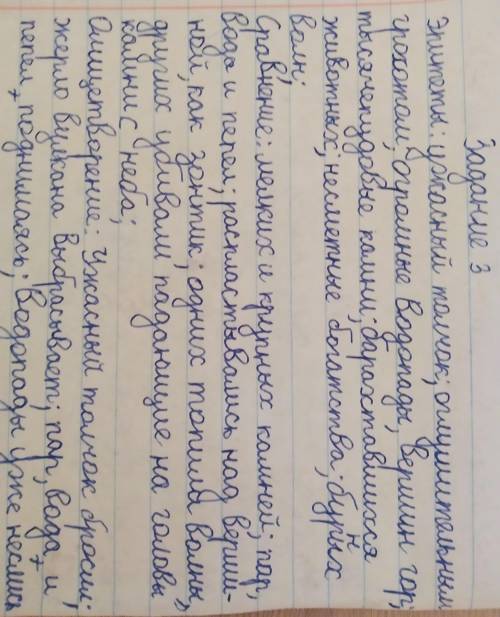 Задание 3
Эпитеты: ужасный толчок; оглушительным
грохотом; огромные водопады; вершин гор;
тысячепудовые камни; барахтавшихся
животных; несметные богатства; бурых
волн;
Сравнение: мелких и крупных камней; пар,
вода и пепел; распластывались над верши-
ной, как зонтик; одних топили волны,
других убивали падающие на головы
камни с неба;
Олицетворение: Ужасный толчок бросил;
жерло вулкана выбрасывает; пар, вода и
пепел поднимаясь; водопады уже неслись